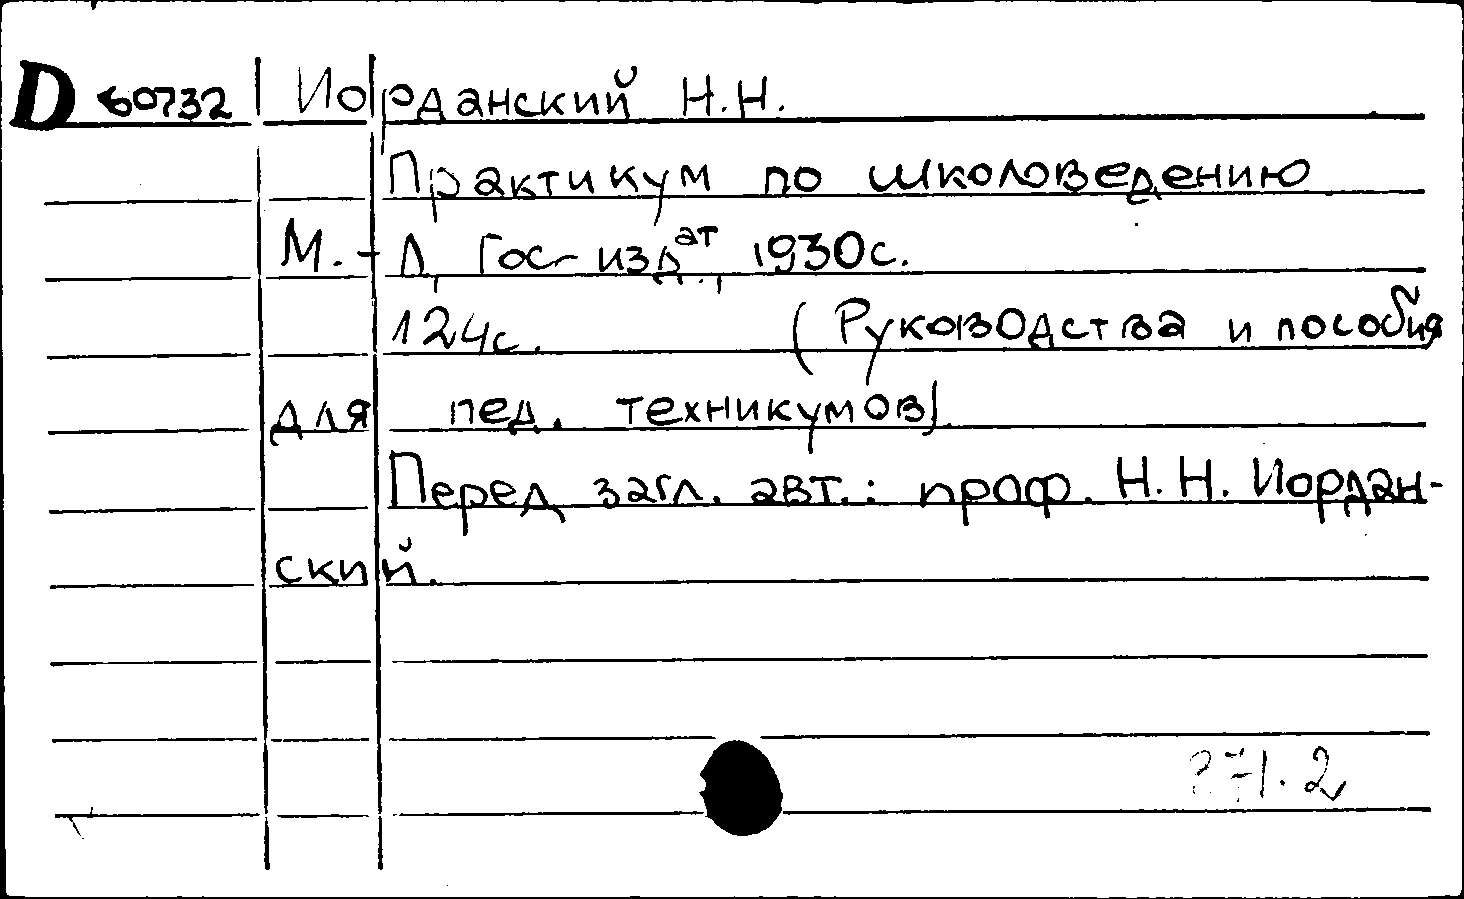 D 60732 Иорданский Н.Н.
Практикум по школоведению
М.-Л, Гос-издат., 1930с.
124с. (Руководства и пособия
для пед. техникумов).
Перед загл. авт.: проф. Н.Н. Иордан-
ский.
371.2